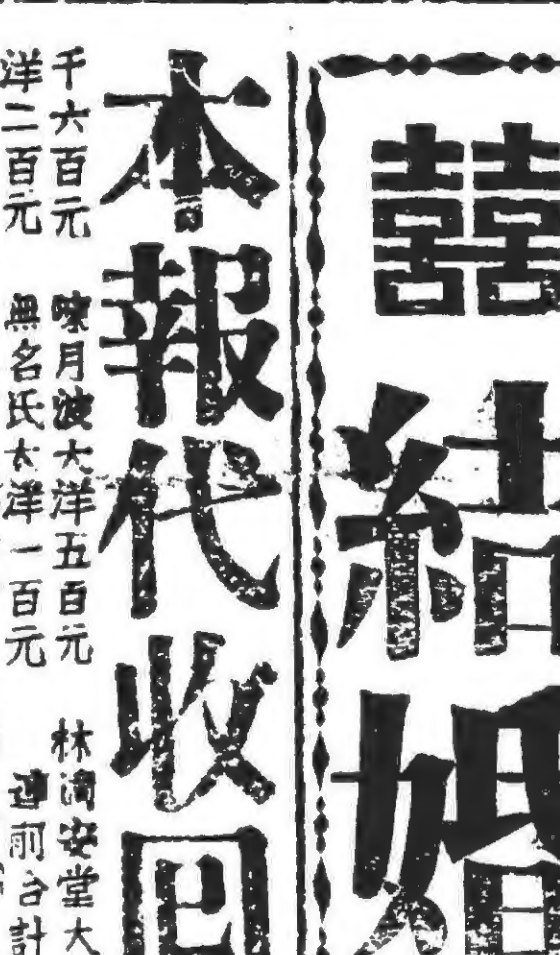 囍
結婚
本報代收回
千六百元 陳月波大洋五百元 林濟安堂大
洋二百元 無名氏大洋一百元 連前合計